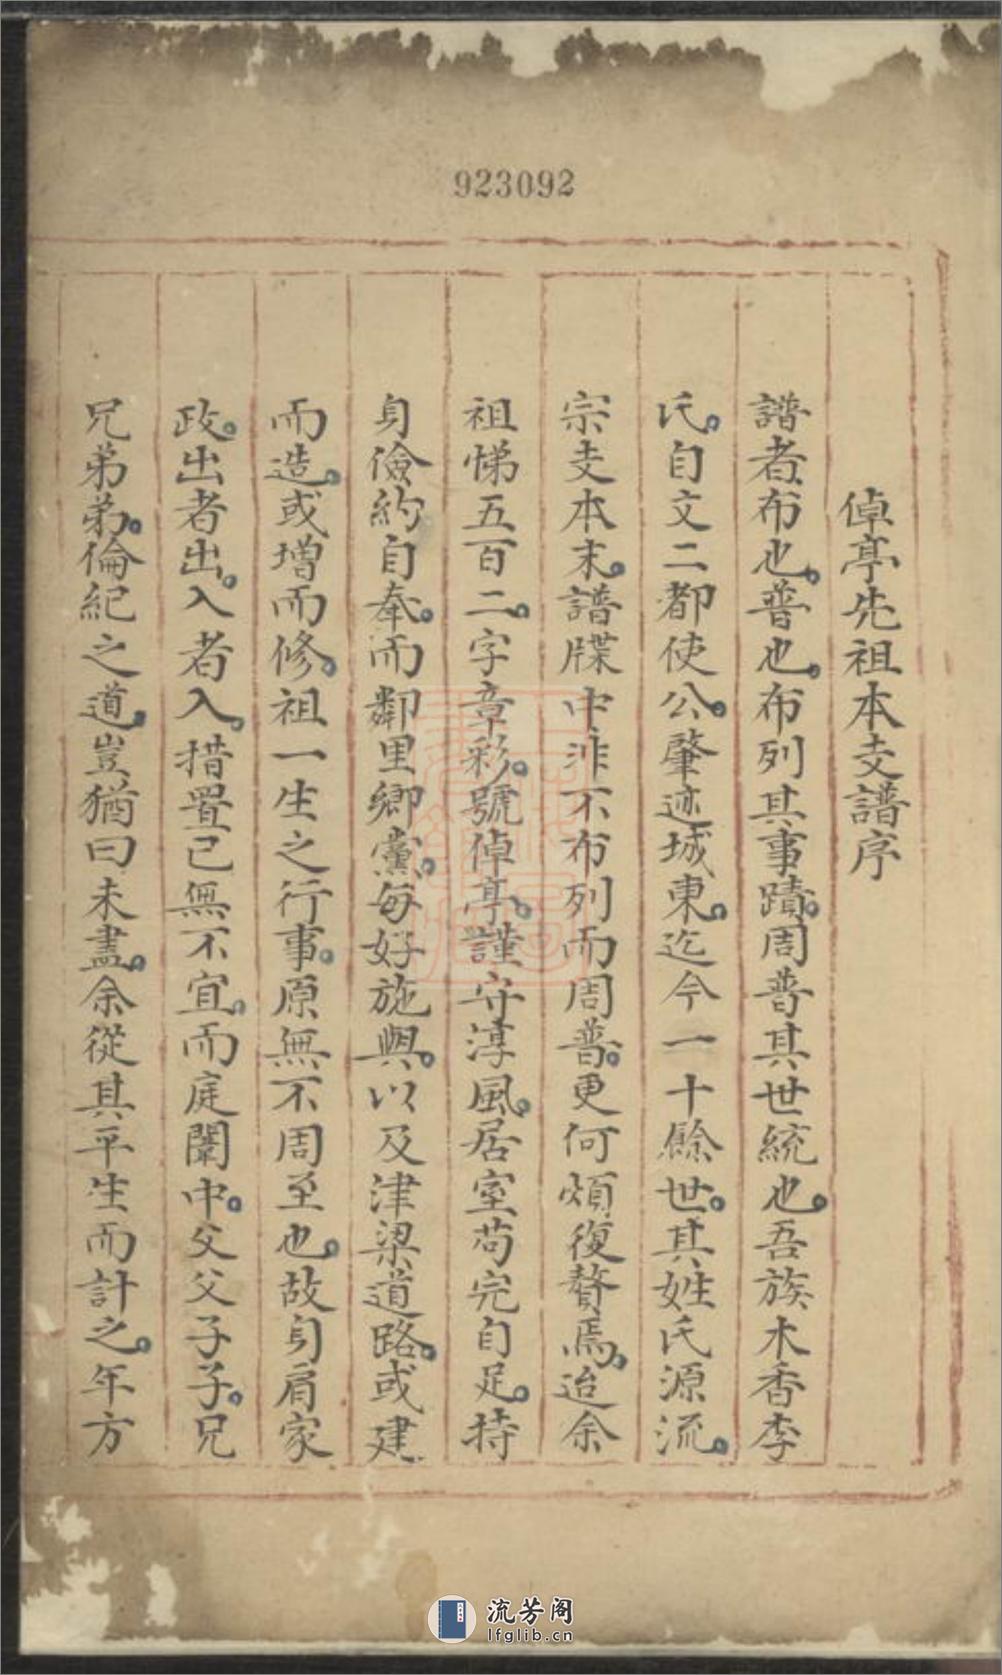 923092
倬亭先祖本支譜序
譜者布也。普也。布列其事蹟。周普其世統也。吾族木香李
氏。自文二都使公。肇迹城東。迄今一十餘世。其姓氏源流。
宗支本末。譜牒中非不布列而周普。更何煩復贅焉。迨余
祖悌五百二。字章彩。號倬亭。謹守淳風。居室苟完自足。持
身儉約自奉。而鄰里鄉黨。每好施與。以及津梁道路。或建
而造。或增而修。祖一生之行事。原無不周至也。故身肩家
政。出者出。入者入。措置已無不宜。而庭闈中。父父子子。兄
兄弟弟。倫紀之道。豈猶曰未盡。余從其平生而計之。年方
流芳阁
lfglib.cn